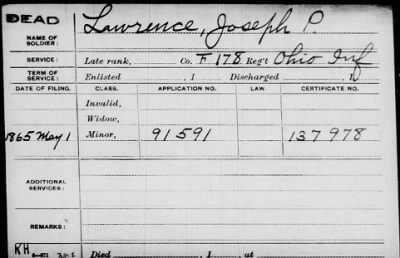 DEAD
NAME OF SOLDIER: Lawrence, Joseph P.
SERVICE: Late rank, Co. F 178 Reg't Ohio Inf
TERM OF SERVICE: Enlisted , 1 Discharged , 1
DATE OF FILING. CLASS. APPLICATION NO. LAW. CERTIFICATE NO.
Invalid,
Widow,
1865 May 1 Minor, 91591 137978
ADDITIONAL SERVICES:
REMARKS:
KH
Died , 1 , at